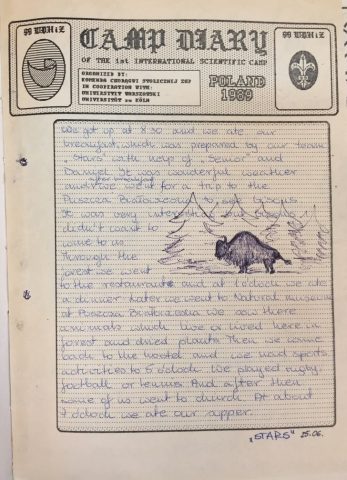 99 WDH i Z
CAMP DIARY
OF THE 1st INTERNATIONAL SCIENTIFIC CAMP
ORGANIZED BY:
KOMENDA CHORĄGWI STOŁECZNEJ ZHP
IN COOPERATION WITH:
UNIVERSYTET WARSZAWSKI
UNIVERSITÄT zu KÖLN
POLAND
1989
99 WDH i Z
We got up at 8.30 and we ate our
breakfast, which was prepared by our team
"Stars" with help of "Senior" and
Daniel. It was wonderful weather
and after breakfast we went for a trip to the
Puszcza Białowieska to see bisons.
It was very interesting but bisons
didn't want to
come to us.
Through the
forest we went
to the restaurant and at 1 o'clock we ate
a dinner. Later we went to Natural museum
of Puszcza Białowieska we saw there
animals which live or lived here in
forest and dried plants. Then we came
back to the hostel and we had sports
activities to 5 o'clock. We played rugby
football or tennis. And after then
some of us went to church. At about
7 o'clock we ate our supper.
"STARS" 25.06.